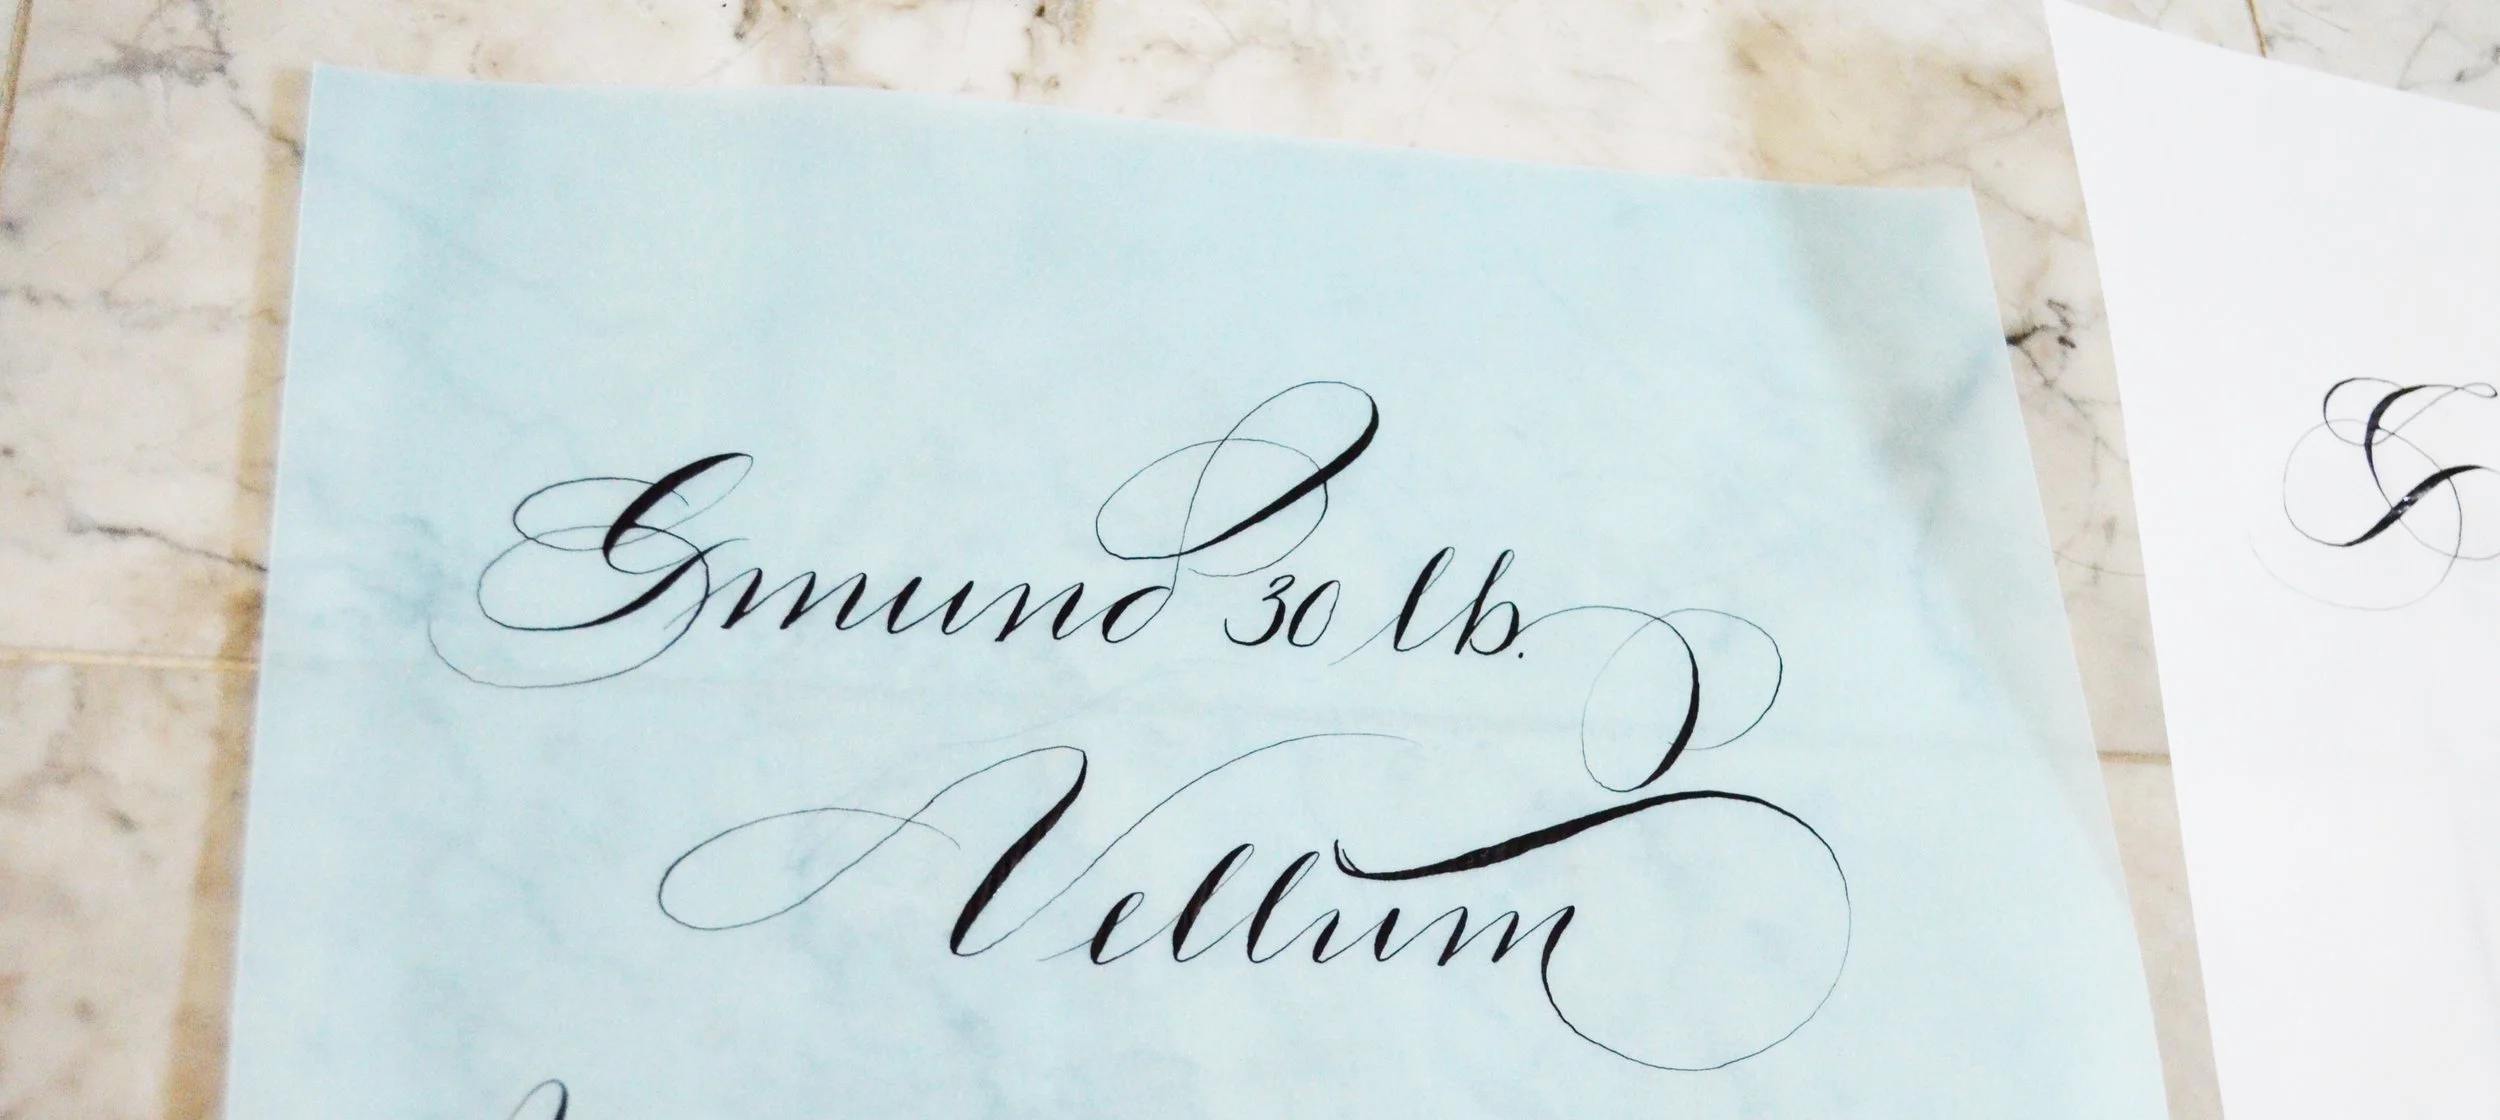 Gmund 30 lb.
Vellum